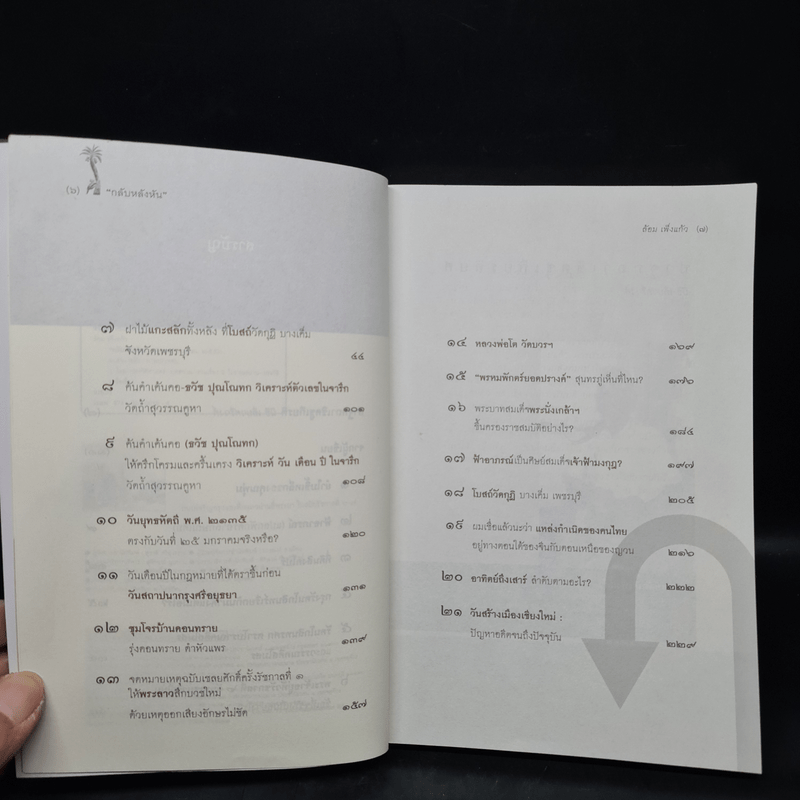 (๖) "กลับหลังหัน"
๗ ฝาไม้แกะสลักทั้งหลัง ที่โบสถ์วัดกุฏิ บางเค็ม
จังหวัดเพชรบุรี ๔๔
๘ ค้นคำเค้นคอ-ธวัช ปุณโณทก วิเคราะห์ตัวเลขในจารึก
วัดถ้ำสุวรรณคูหา ๑๐๑
๙ ค้นคำเค้นคอ (ธวัช ปุณโณทก)
ให้ครึกโครมและครื้นเครง วิเคราะห์ วัน เดือน ปี ในจารึก
วัดถ้ำสุวรรณคูหา ๑๐๘
๑๐ วันยุทธหัตถี พ.ศ. ๒๑๓๕
ตรงกับวันที่ ๒๕ มกราคมจริงหรือ? ๑๒๐
๑๑ วันเดือนปีในกฎหมายที่ได้ตราขึ้นก่อน
วันสถาปนากรุงศรีอยุธยา ๑๓๑
๑๒ ชุมโจรบ้านดอนทราย
รุ่งดอนทราย ดำหัวแพร ๑๓๙
๑๓ จดหมายเหตุฉบับเชลยศักดิ์ครั้งรัชกาลที่ ๑
ให้พระลาวสึกบวชใหม่
ด้วยเหตุออกเสียงอักษรไม่ชัด ๑๕๗
ล้อม เพ็งแก้ว (๗)
๑๔ หลวงพ่อโต วัดบวรฯ ๑๖๙
๑๕ "พรหมพักตร์ยอดปรางค์" สุนทรภู่เห็นที่ไหน? ๑๗๐
๑๖ พระบาทสมเด็จพระนั่งเกล้าฯ
ขึ้นครองราชสมบัติอย่างไร? ๑๘๔
๑๗ ฟ้าอาภรณ์เป็นศิษย์สมเด็จเจ้าฟ้ามงกุฎ? ๑๙๗
๑๘ โบสถ์วัดกุฏิ บางเค็ม เพชรบุรี ๒๐๕
๑๙ ผมเชื่อแล้วนะว่า แหล่งกำเนิดของคนไทย
อยู่ทางตอนใต้ของจีนกับตอนเหนือของญวน ๒๑๖
๒๐ อาทิตย์ถึงเสาร์ ลำดับตามอะไร? ๒๒๒
๒๑ วันสร้างเมืองเชียงใหม่ :
ปัญหาอดีตจนถึงปัจจุบัน ๒๒๙